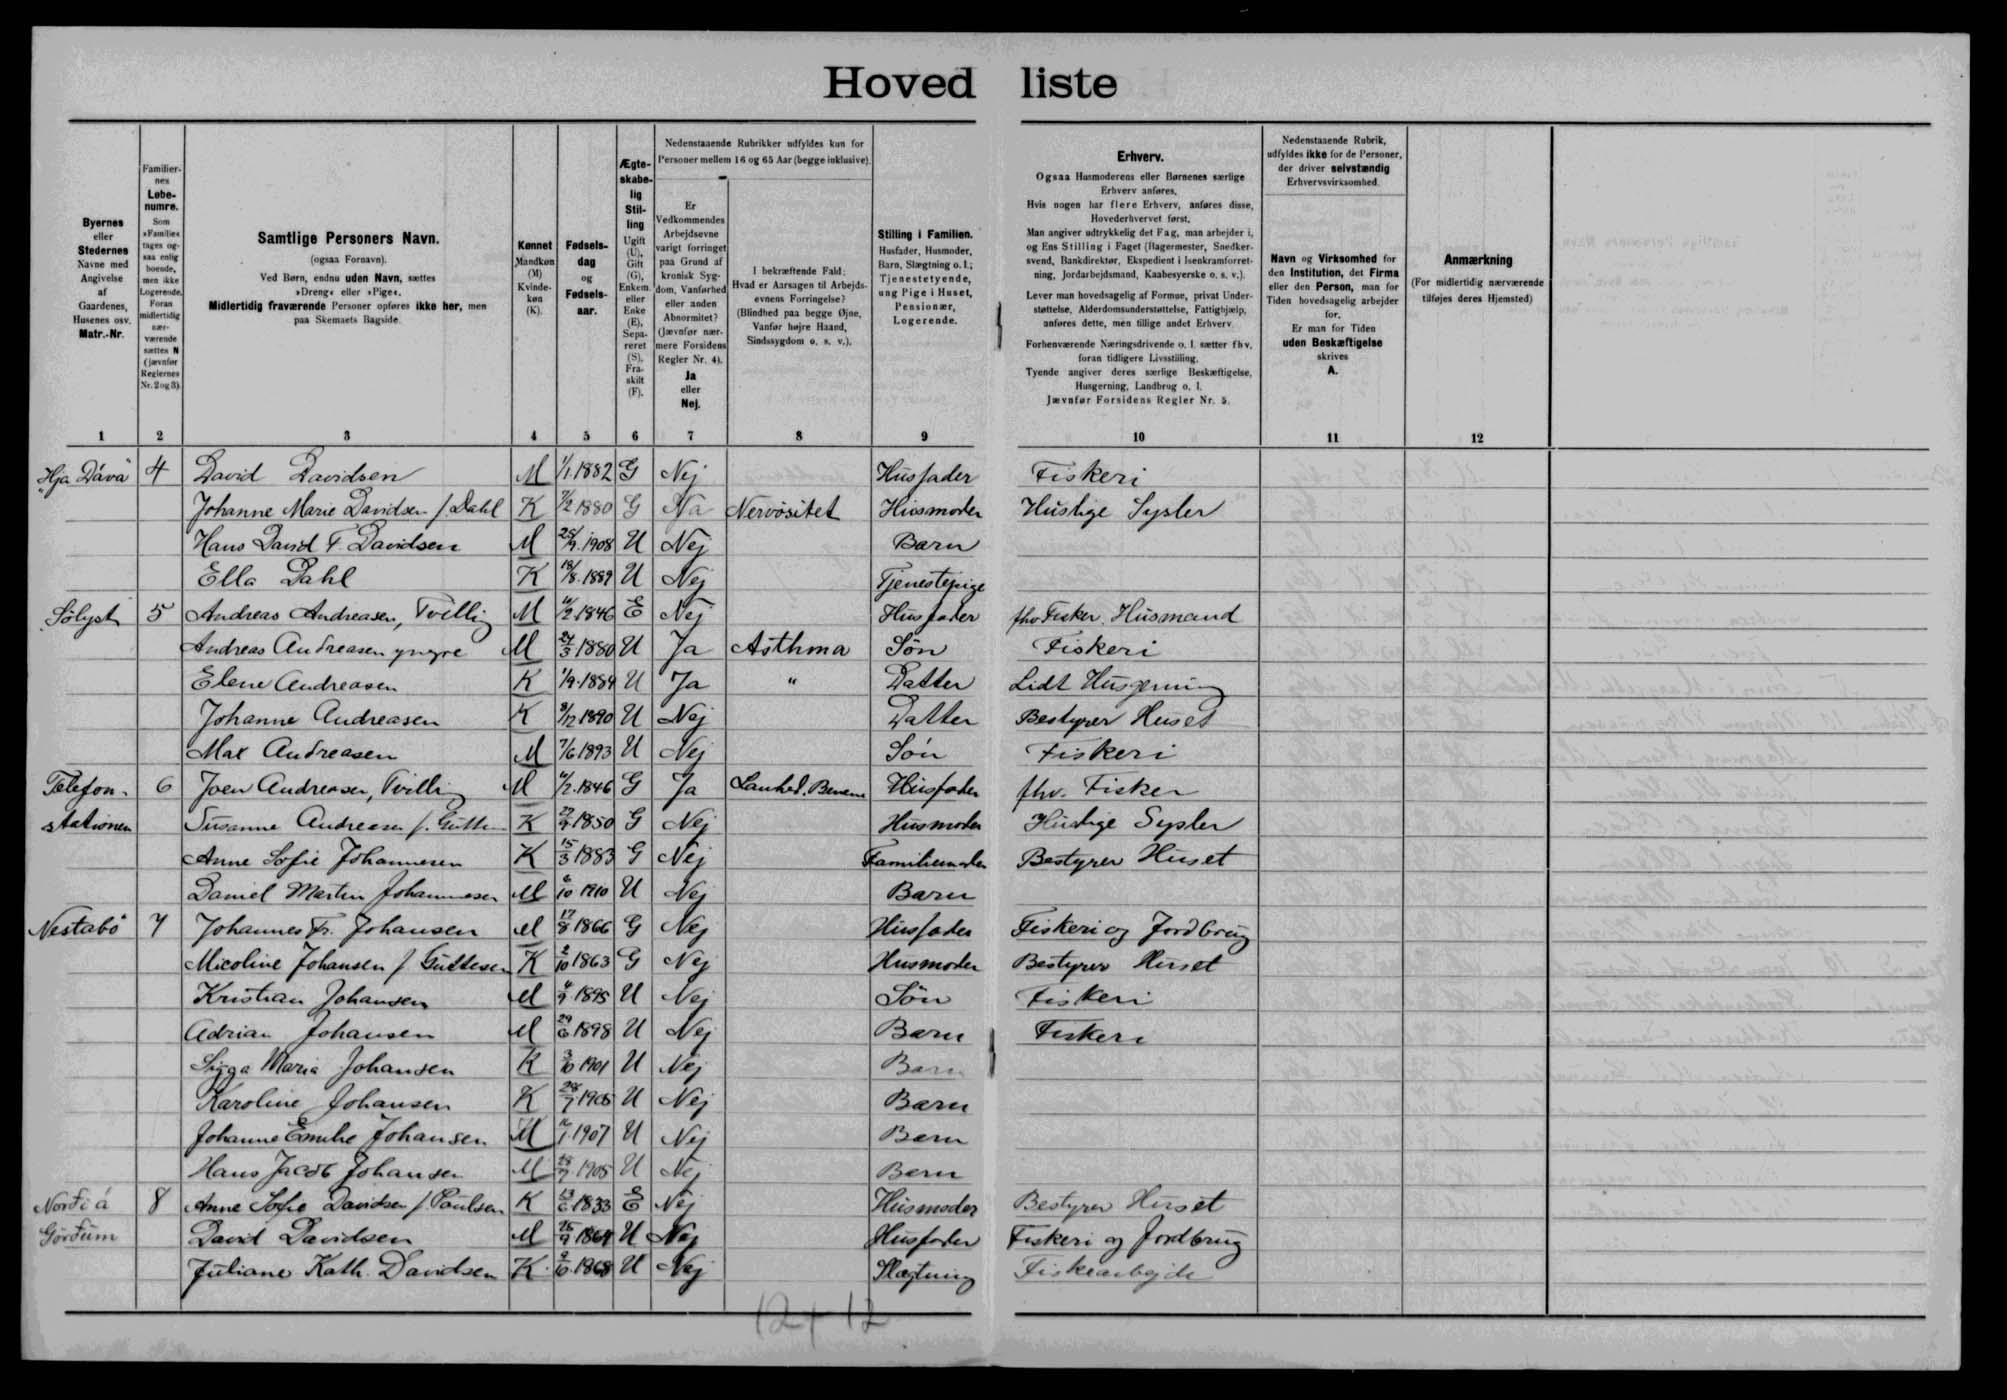 Hovedliste
Byernes eller Stedernes Navne med Angivelse af Gaardenes, Husenes osv. Matr.-Nr.
Familiernes Løbenumre. Som »Familie« tages ogsaa enlig boende, men ikke Logerende. Foran midlertidig nærværende sættes N (jævnfør Reglernes Nr. 2 og 3).
Samtlige Personers Navn.
(ogsaa Fornavn).
Ved Børn, endnu uden Navn, sættes
»Dreng« eller »Pige«.
Midlertidig fraværende Personer opføres ikke her, men
paa Skemaets Bagside.
Kønnet Mandkøn (M) Kvindekøn (K).
Fødselsdag og Fødselsaar.
Ægteskabelig Stilling Ugift (U), Gift (G), Enkem. eller Enke (E), Separeret (S), Fraskilt (F).
Nedenstaaende Rubrikker udfyldes kun for
Personer mellem 16 og 65 Aar (begge inklusive).
Er Vedkommendes Arbejdsevne varigt forringet paa Grund af kronisk Sygdom, Vanførhed eller anden Abnormitet? (Jævnfør nærmere Forsidens Regler Nr. 4). Ja eller Nej.
I bekræftende Fald: Hvad er Aarsagen til Arbejdsevnens Forringelse? (Blindhed paa begge Øjne, Vanfør højre Haand, Sindssygdom o. s. v.).
Stilling i Familien.
Husfader, Husmoder, Barn, Slægtning o. l.; Tjenestetyende, ung Pige i Huset, Pensionær, Logerende.
Erhverv.
Ogsaa Husmoderens eller Børnenes særlige
Erhverv anføres.
Hvis nogen har flere Erhverv, anføres disse,
Hovederhvervet først.
Man angiver udtrykkelig det Fag, man arbejder i,
og Ens Stilling i Faget (Bagermester, Snedker-
svend, Bankdirektør, Ekspedient i Isenkramforret-
ning, Jordarbejdsmand, Kaabesyerske o. s. v.).
Lever man hovedsagelig af Formue, privat Under-
støttelse, Alderdomsunderstøttelse, Fattighjælp,
anføres dette, men tillige andet Erhverv.
Forhenværende Næringsdrivende o. l. sætter fhv.
foran tidligere Livsstilling.
Tyende angiver deres særlige Beskæftigelse,
Husgerning, Landbrug o. l.
Jævnfør Forsidens Regler Nr. 5.
Nedenstaaende Rubrik,
udfyldes ikke for de Personer,
der driver selvstændig
Erhvervsvirksomhed.
Navn og Virksomhed for
den Institution, det Firma
eller den Person, man for
Tiden hovedsagelig arbejder
for.
Er man for Tiden
uden Beskæftigelse
skrives
A.
Anmærkning
(For midlertidig nærværende
tilføjes deres Hjemsted)
1 2 3 4 5 6 7 8 9 10 11 12
"Hja Dáva" 4 David Davidsen M 1/1.1882 G Nej Husfader Fiskeri
Johanne Marie Davidsen f. Dahl K 7/2 1880 G Na Nervøsitet Husmoder Huslige Sysler
Hans David F. Davidsen M 25/9.1908 U Nej Barn
Ella Dahl K 18/8.1889 U Nej Tjenestepige
Sólyst 5 Andreas Andreasen, Tvilling M 11/2.1846 E Nej Husfader fhv Fisker. Husmand
Andreas Andreasen yngre M 24/3 1880 U Ja Asthma Søn Fiskeri
Elene Andreasen K 1/9.1884 U Ja " Datter Lidt Husgerning
Johanne Andreasen K 8/12 1890 U Nej Datter Bestyrer Huset
Max Andreasen M 7/6 1893 U Nej Søn Fiskeri
Telefon- 6 Joen Andreasen, Tvilling M 11/2.1846 G Ja Lamhed. Benene Husfader fhv. Fisker
stationen Susanne Andreasen f. K 1850 G Nej Husmoder Huslige Sysler
Anne Sofie Johannesen K 15/3 1883 G Nej Familiemoder Bestyrer Huset
Daniel Martin Johannesen M 6/10 1910 U Nej Barn
Nestabø 7 Johannes Fr. Johansen M 17/8 1866 G Nej Husfader Fiskeri og Jordbrug
Micoline Johansen f Guttesen K 2/10 1863 G Nej Husmoder Bestyrer Huset
Kristian Johansen M 1895 U Nej Søn Fiskeri
Adrian Johansen M 29/6 1898 U Nej Barn Fiskeri
Sigga Maria Johansen K 3/10 1901 U Nej Barn
Karoline Johansen K 1905 U Nej Barn
Johanne Emilie Johansen M 1907 U Nej Barn
Hans Jacob Johansen M 1905 U Nej Barn
Norði á 8 Anne Sofie Davidsen f. Poulsen K 13/6 1833 E Nej Husmoder Bestyrer Huset
Gørðum David Davidsen M 1864 U Nej Husfader Fiskeri og Jordbrug
Juliane Kath. Davidsen K. 1868 U Nej Slægtning Fiskearbejde
12 + 12